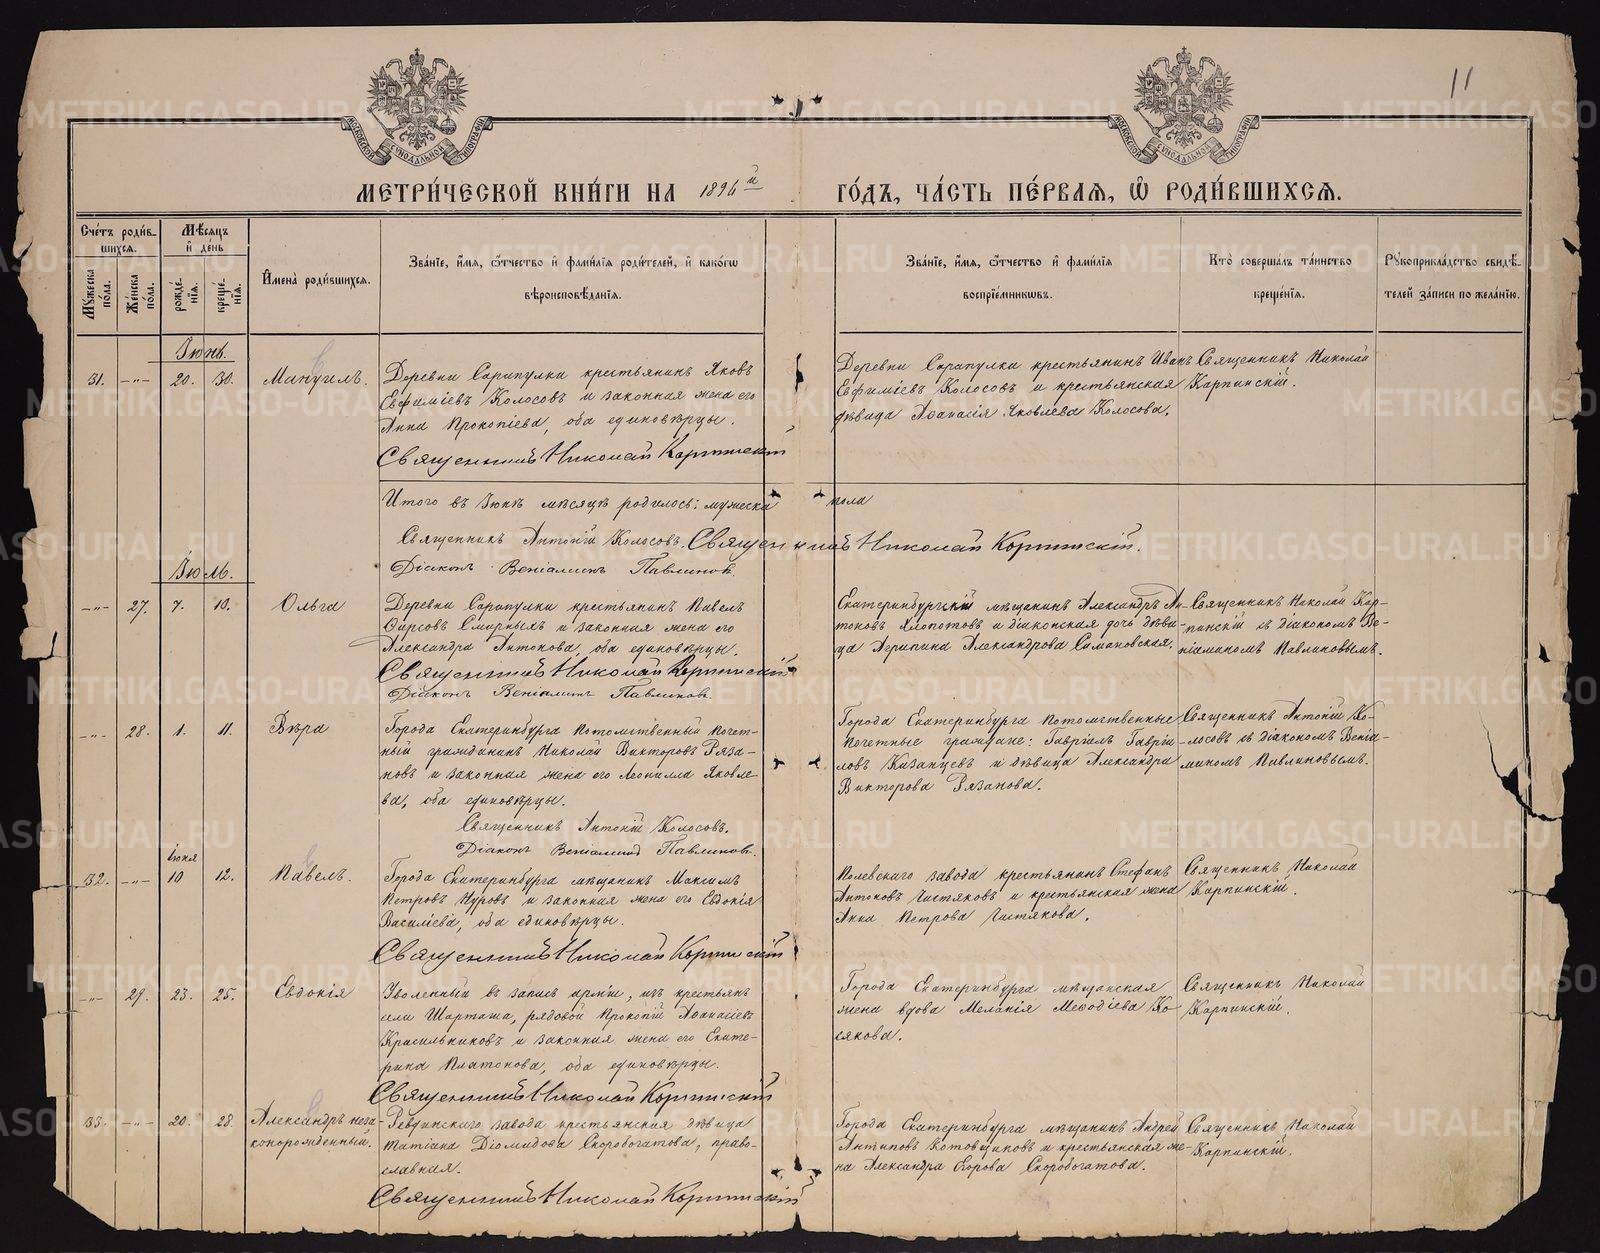 11
МЕТРИЧЕСКОЙ КНИГИ НА 1896й ГОДЪ, ЧАСТЬ ПЕРВАЯ, Ѡ РОДИВШИХСЯ.
Счетъ родившихся.
Мужеска пола.
Женска пола.
Мѣсяцъ и день
рожденія.
крещенія.
Имена родившихся.
Званіе, имя, отчество и фамилія родителей, и какогѡ
вѣроисповѣданія.
Званіе, имя, отчество и фамилія
воспріемниковъ.
Кто совершалъ таинство
крещенія.
Рукоприкладство свидѣ-
телей записи по желанію.
Іюнь.
31. —"— 20. 30. Мануилъ.
Деревни Сарапулки крестьянинъ Яковъ
Евфиміевъ Колосовъ и законная жена его
Анна Прокопіева, оба единовѣрцы.
Священникъ Николай Карпинскій
Деревни Сарапулки крестьянинъ Иванъ
Евфиміевъ Колосовъ и крестьянская
дѣвица Аѳанасія Яковлева Колосова.
Священникъ Николай
Карпинскій.
Итого въ Іюнѣ мѣсяцѣ родилось: мужеска пола
Священникъ Антоній Колосовъ. Священникъ Николай Карпинскій.
Діаконъ Веніаминъ Павлиновъ.
Іюль.
—"— 27. 7. 10. Ольга
Деревни Сарапулки крестьянинъ Павелъ
Ѳирсовъ Смирныхъ и законная жена его
Александра Антонова, оба единовѣрцы.
Священникъ Николай Карпинскій
Діаконъ Веніаминъ Павлиновъ
Екатеринбургскій мѣщанинъ Александръ Ан-
тоновъ Хлопотовъ и діаконская дочь дѣви-
ца Агрипина Александрова Симановская.
Священникъ Николай Кар-
пинскій съ діакономъ Ве-
ніаминомъ Павлиновымъ.
—"— 28. 1. 11. Вѣра
Города Екатеринбурга потомственный почет-
ный гражданинъ Николай Викторовъ Ряза-
новъ и законная жена его Леонилла Яковле-
ва, оба единовѣрцы.
Священникъ Антоній Колосовъ.
Діаконъ Веніаминъ Павлиновъ.
Города Екатеринбурга потомственные
почетные граждане: Гавріилъ Гавріи-
ловъ Казанцевъ и дѣвица Александра
Викторова Рязанова.
Священникъ Антоній Ко-
лосовъ съ діакономъ Веніа-
миномъ Павлиновымъ.
іюня
32. —"— 10 12. Павелъ.
Города Екатеринбурга мѣщанинъ Максимъ
Петровъ Нуровъ и законная жена его Евдокія
Василіева, оба единовѣрцы.
Священникъ Николай Карпинскій
Полевскаго завода крестьянинъ Стефанъ
Антоновъ Чистяковъ и крестьянская жена
Анна Петрова Чистякова.
Священникъ Николай
Карпинскій.
—"— 29. 23. 25. Евдокія
Уволенный въ запасъ арміи, изъ крестьянъ
села Шарташа, рядовой Прокопій Аѳанасіевъ
Красильниковъ и законная жена его Екате-
рина Платонова, оба единовѣрцы.
Священникъ Николай Карпинскій
Города Екатеринбурга мѣщанская
жена вдова Меланія Меѳодіева Ко-
сякова.
Священникъ Николай
Карпинскій.
33. —"— 20. 28. Александръ неза-
конорожденный.
Ревдинскаго завода крестьянская дѣвица
Татіана Діомидова Скоробогатова, право-
славная.
Священникъ Николай Карпинскій
Города Екатеринбурга мѣщанинъ Андрей
Антиповъ Котовщиковъ и крестьянская же-
на Александра Егорова Скоробогатова.
Священникъ Николай
Карпинскій.
METRIKI.GASO-URAL.RU